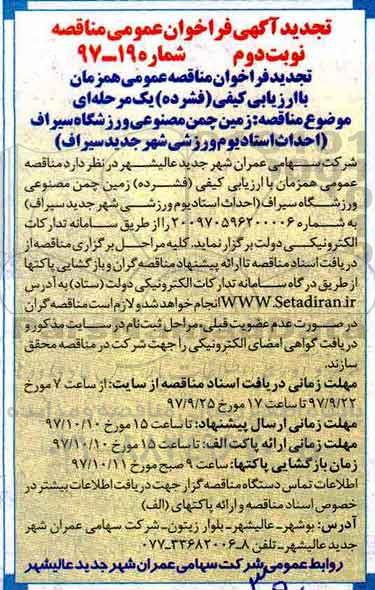 تجدید آگهی فراخوان عمومی مناقصه
نوبت دوم شماره ۱۹-۹۷
تجدید فراخوان مناقصه عمومی همزمان
با ارزیابی کیفی (فشرده) یک مرحله‌ای
موضوع مناقصه: زمین چمن مصنوعی ورزشگاه سیراف
(احداث استادیوم ورزشی شهر جدید سیراف)
شرکت سهامی عمران شهر جدید عالیشهر در نظر دارد مناقصه
عمومی همزمان با ارزیابی کیفی (فشرده) زمین چمن مصنوعی
ورزشگاه سیراف (احداث استادیوم ورزشی شهر جدید سیراف)
به شماره ۲۰۰۹۷۰۵۹۶۲۰۰۰۰۶ را از طریق سامانه تدارکات
الکترونیکی دولت برگزار نماید. کلیه مراحل برگزاری مناقصه از
دریافت اسناد مناقصه تا ارائه پیشنهاد مناقصه گران و بازگشایی پاکتها
از طریق درگاه سامانه تدارکات الکترونیکی دولت (ستاد) به آدرس
WWW.Setadiran.ir انجام خواهد شد و لازم است مناقصه گران
در صورت عدم عضویت قبلی، مراحل ثبت نام در سایت مذکور و
دریافت گواهی امضای الکترونیکی را جهت شرکت در مناقصه محقق
سازند.
مهلت زمانی دریافت اسناد مناقصه از سایت: از ساعت ۷ مورخ
۹۷/۹/۲۲ تا ساعت ۱۷ مورخ ۹۷/۹/۲۵
مهلت زمانی ارسال پیشنهاد: تا ساعت ۱۵ مورخ ۹۷/۱۰/۱۰
مهلت زمانی ارائه پاکت الف: تا ساعت ۱۵ مورخ ۹۷/۱۰/۱۰
زمان بازگشایی پاکتها: ساعت ۹ صبح مورخ ۹۷/۱۰/۱۱
اطلاعات تماس دستگاه مناقصه گزار جهت دریافت اطلاعات بیشتر در
خصوص اسناد مناقصه و ارائه پاکتهای (الف)
آدرس: بوشهر- عالیشهر- بلوار زیتون- شرکت سهامی عمران شهر
جدید عالیشهر- تلفن ۸-۳۳۶۸۲۰۰۶-۰۷۷
روابط عمومی شرکت سهامی عمران شهر جدید عالیشهر